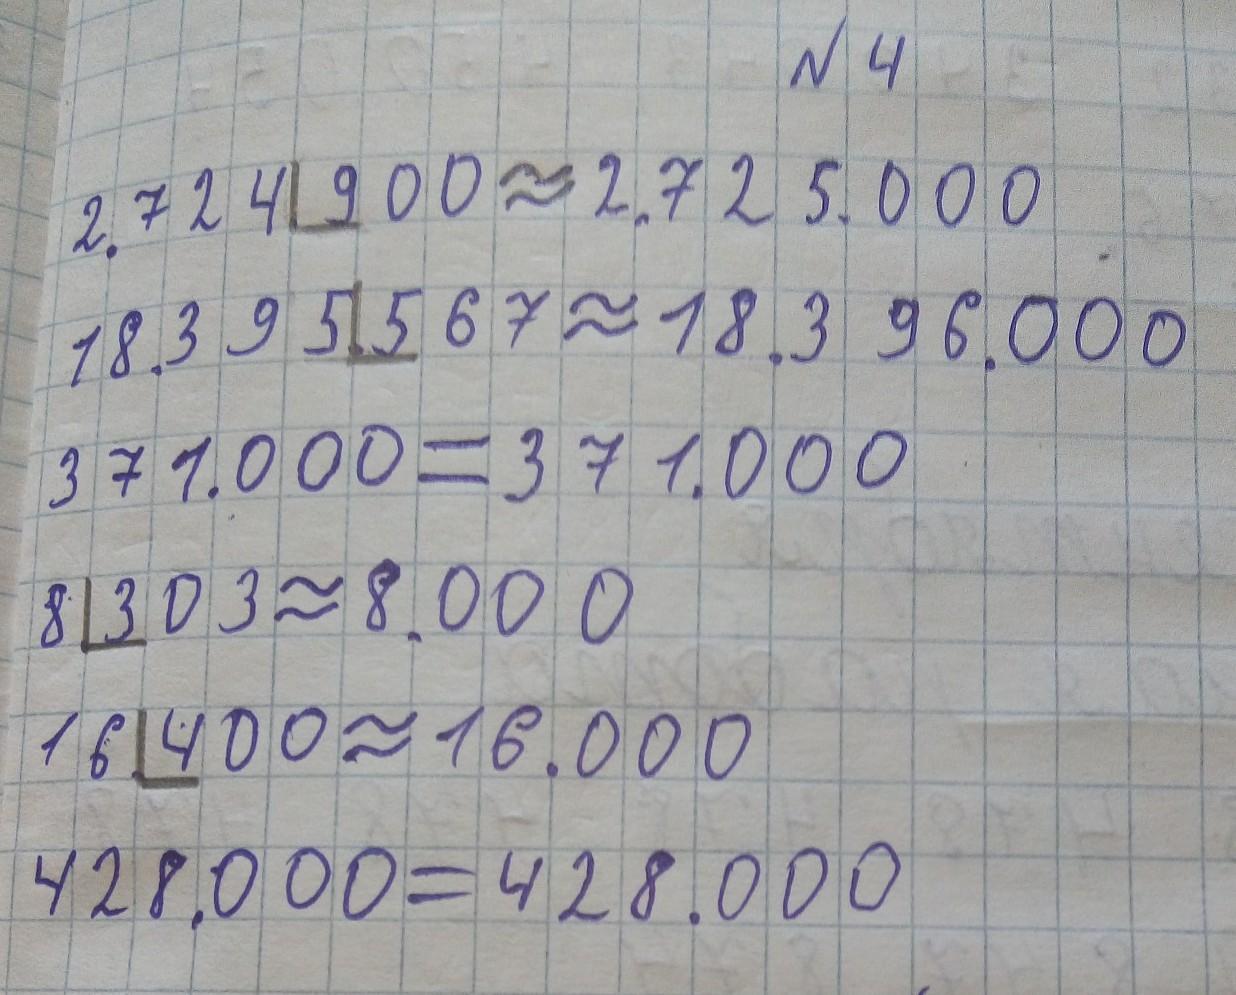 № 4
2.724900≈2.725.000
18.395.567≈18.396.000
371.000=371.000
8303≈8.000
16.400≈16.000
428.000=428.000